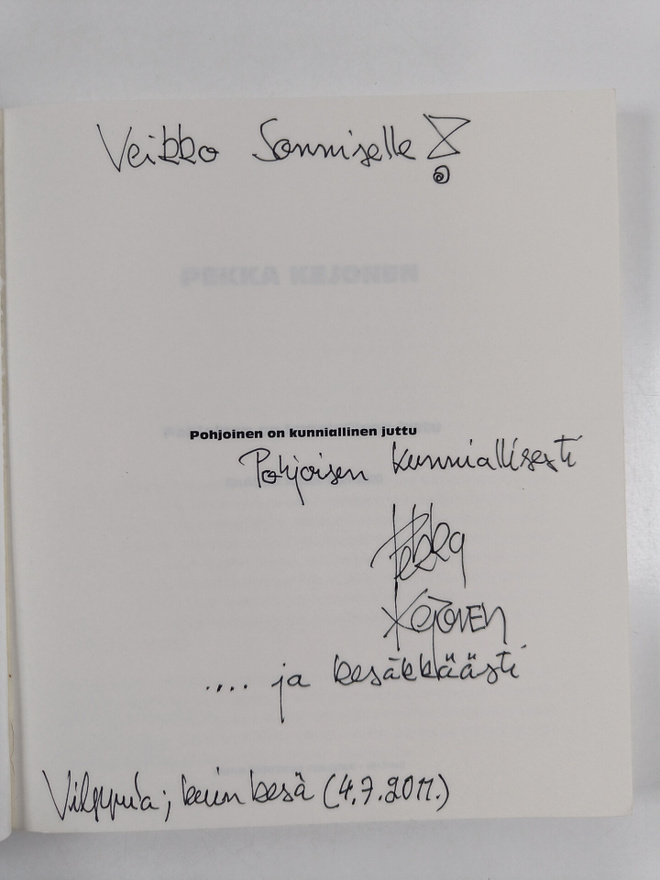 Veikko Sonniselle!
PEKKA KEJONEN
Pohjoinen on kunniallinen juttu
Pohjoisen kunniallisesti
Pekka
Kejonen
.... ja kesäkkäästi
Vilppula; kuin kesä (4.7.2011.)